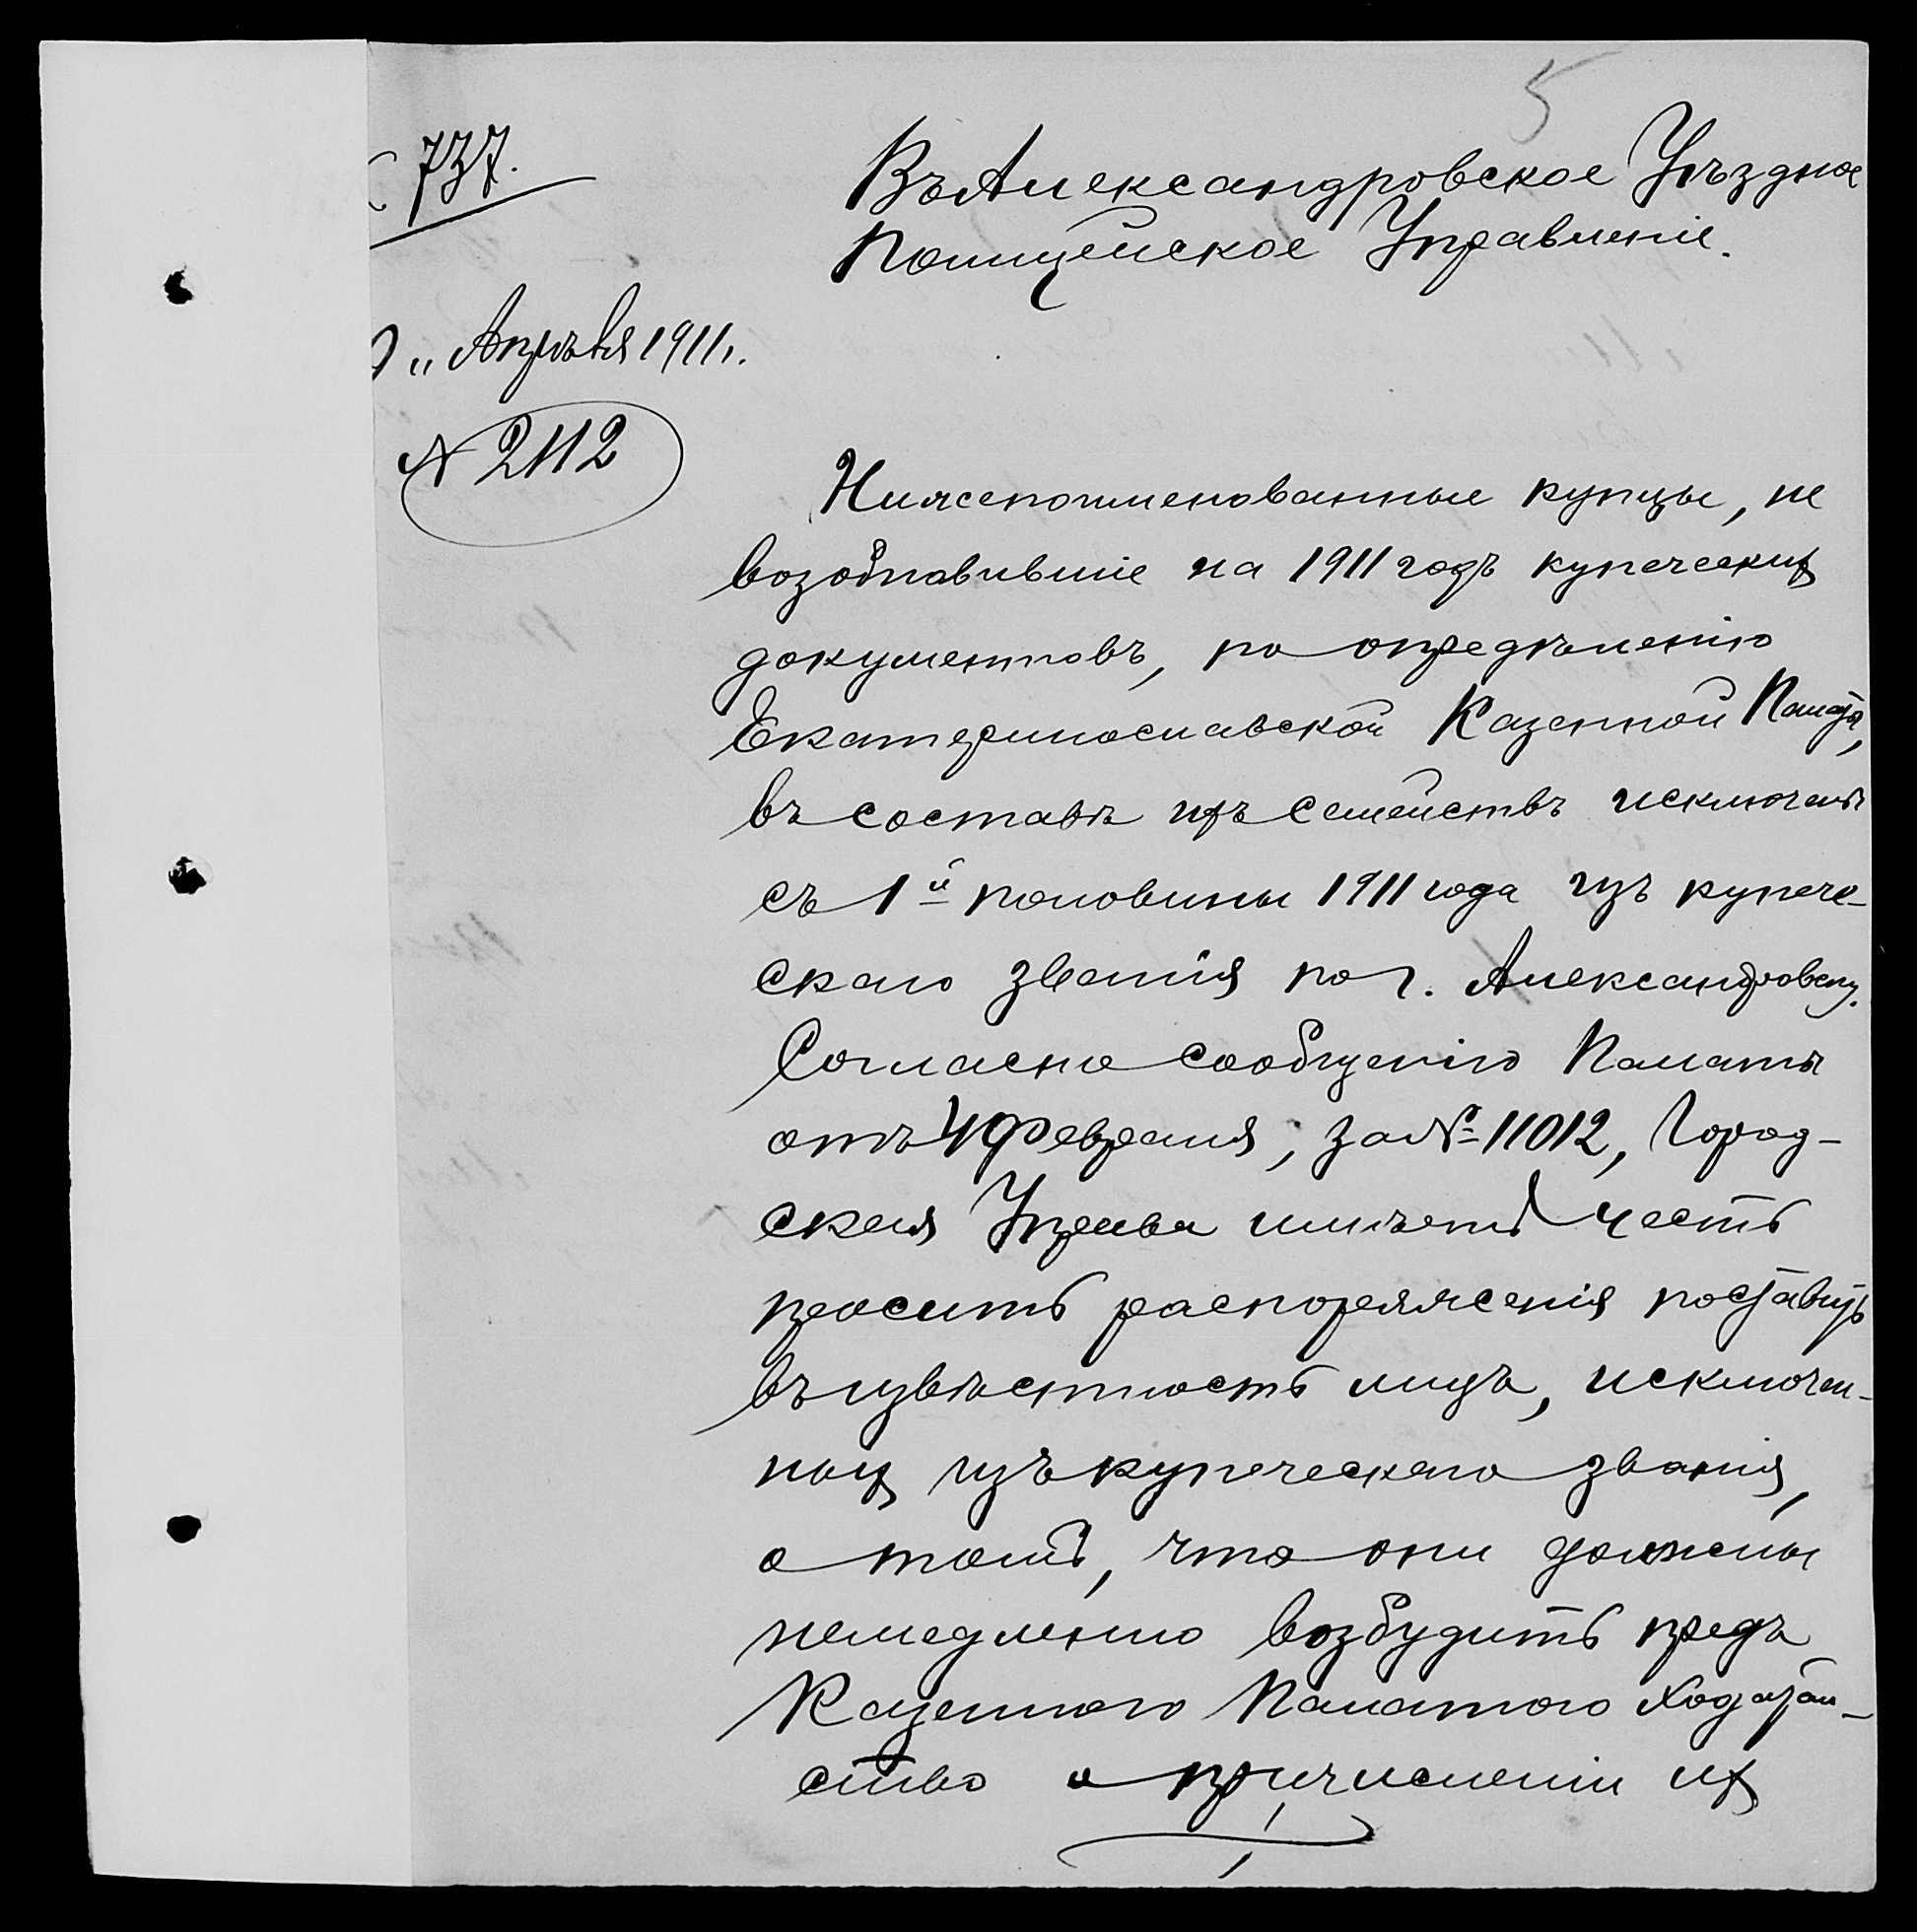 5
737.
Въ Александровское Уѣздное
Полицейское Управленіе.
„ Апрѣля 1911 г.
№ 2112
Нижепоименованные купцы, не
возобновившіе на 1911 годъ купеческихъ
документовъ, по опредѣленію
Екатеринославской Казенной Палаты,
въ составѣ ихъ семействъ исключены
съ 1й половины 1911 года изъ купече-
скаго званія по г. Александровску.
Согласно сообщенію Палаты
отъ 4 Февраля, за № 11012, Город-
ская Управа имѣетъ честь
просить распоряженія поставить
въ извѣстность лицъ, исключен-
ныхъ изъ купеческаго званія,
о томъ, что они должны
немедленно возбудить предъ
Казенною Палатою ходатай-
ство о причисленіи ихъ